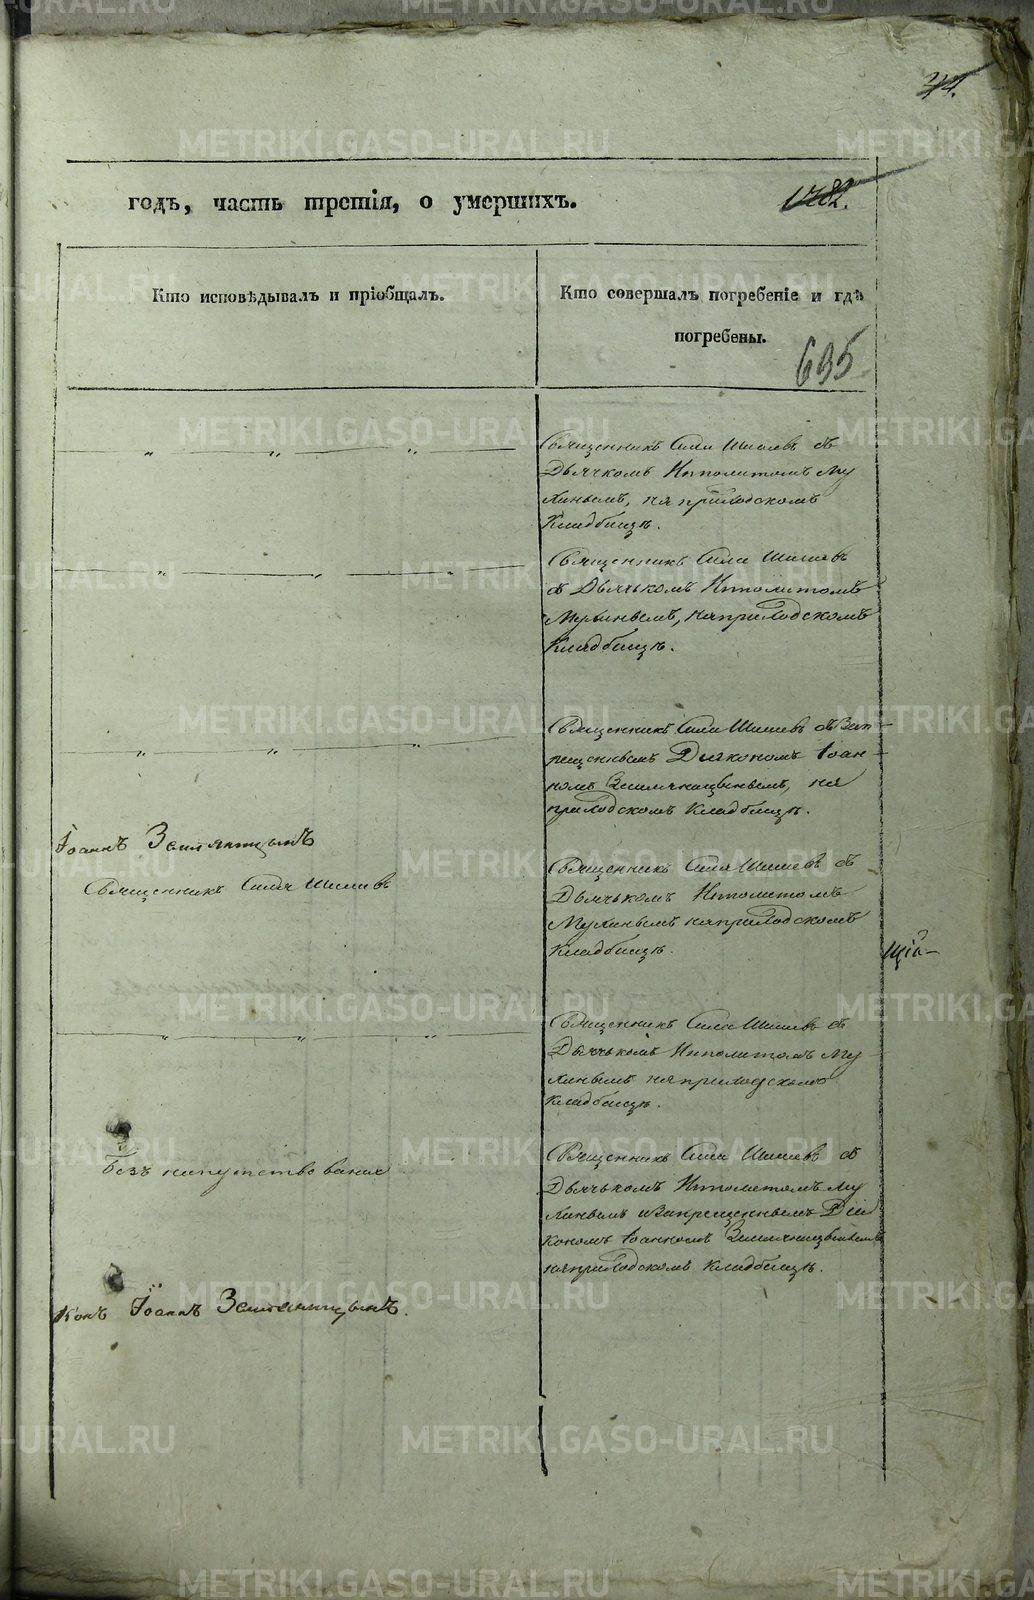 годъ, часть третія, о умершихъ.
1782.
Кто исповѣдывалъ и пріобщалъ.
Кто совершалъ погребеніе и гдѣ
погребены.
635
Священникъ Сила Шишевъ съ
Дьячкомъ Ипполитомъ Му
хинымъ, на приходскомъ
Кладбищѣ.
Священникъ Сила Шишевъ
съ Дьячькомъ Ипполитомъ
Мухинымъ, на приходскомъ
Кладбищѣ.
Священникъ Сила Шишевъ съ Зап
рещеннымъ Діякономъ Іоан
номъ Земляницынымъ, на
приходскомъ Кладбищѣ.
Іоаннъ Земляницынъ
Священникъ Сила Шишевъ
Священникъ Сила Шишевъ съ
Дьячькомъ Ипполитомъ
Мухинымъ на приходскомъ
Кладбищѣ.
щій
Священникъ Сила Шишевъ съ
Дьячькомъ Ипполитомъ Му
хинымъ на приходскомъ
кладбищѣ.
Безъ напутствованія
Священникъ Сила Шишевъ съ
Дьячькомъ Ипполитомъ Му
хинымъ и Запрещеннымъ Діа
кономъ Іоанномъ Земляницынымъ
на приходскомъ кладбищѣ.
конъ Іоаннъ Земляницынъ.
METRIKI.GASO-URAL.RU